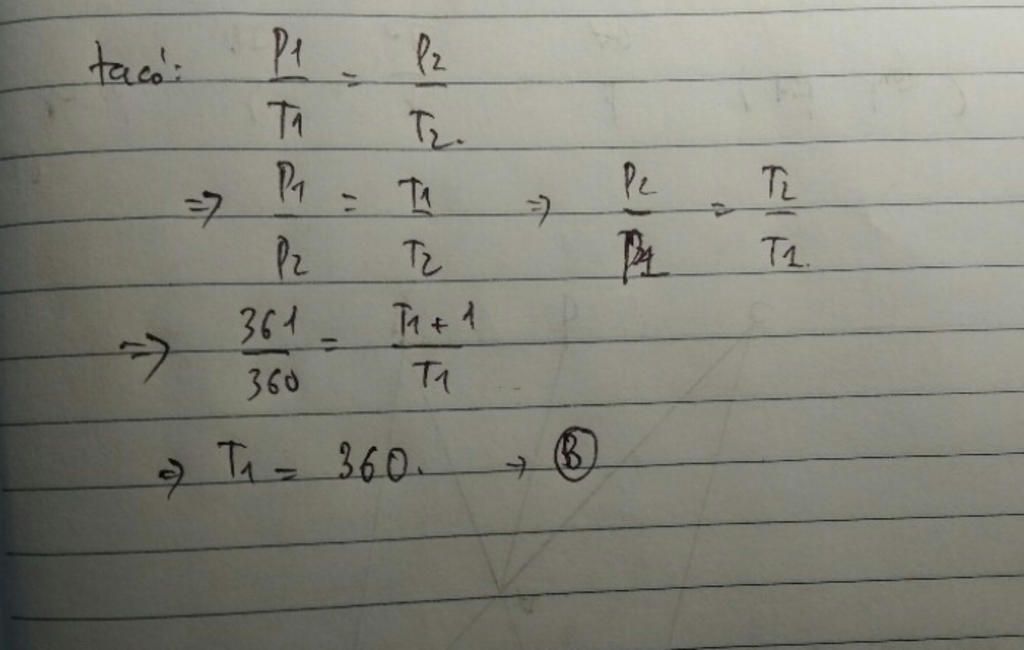 ta có: P1/T1 = P2/T2.
=> P1/P2 = T1/T2 => P2/P1 = T2/T1.
=> 361/360 = T1 + 1/T1
=> T1 = 360. → B